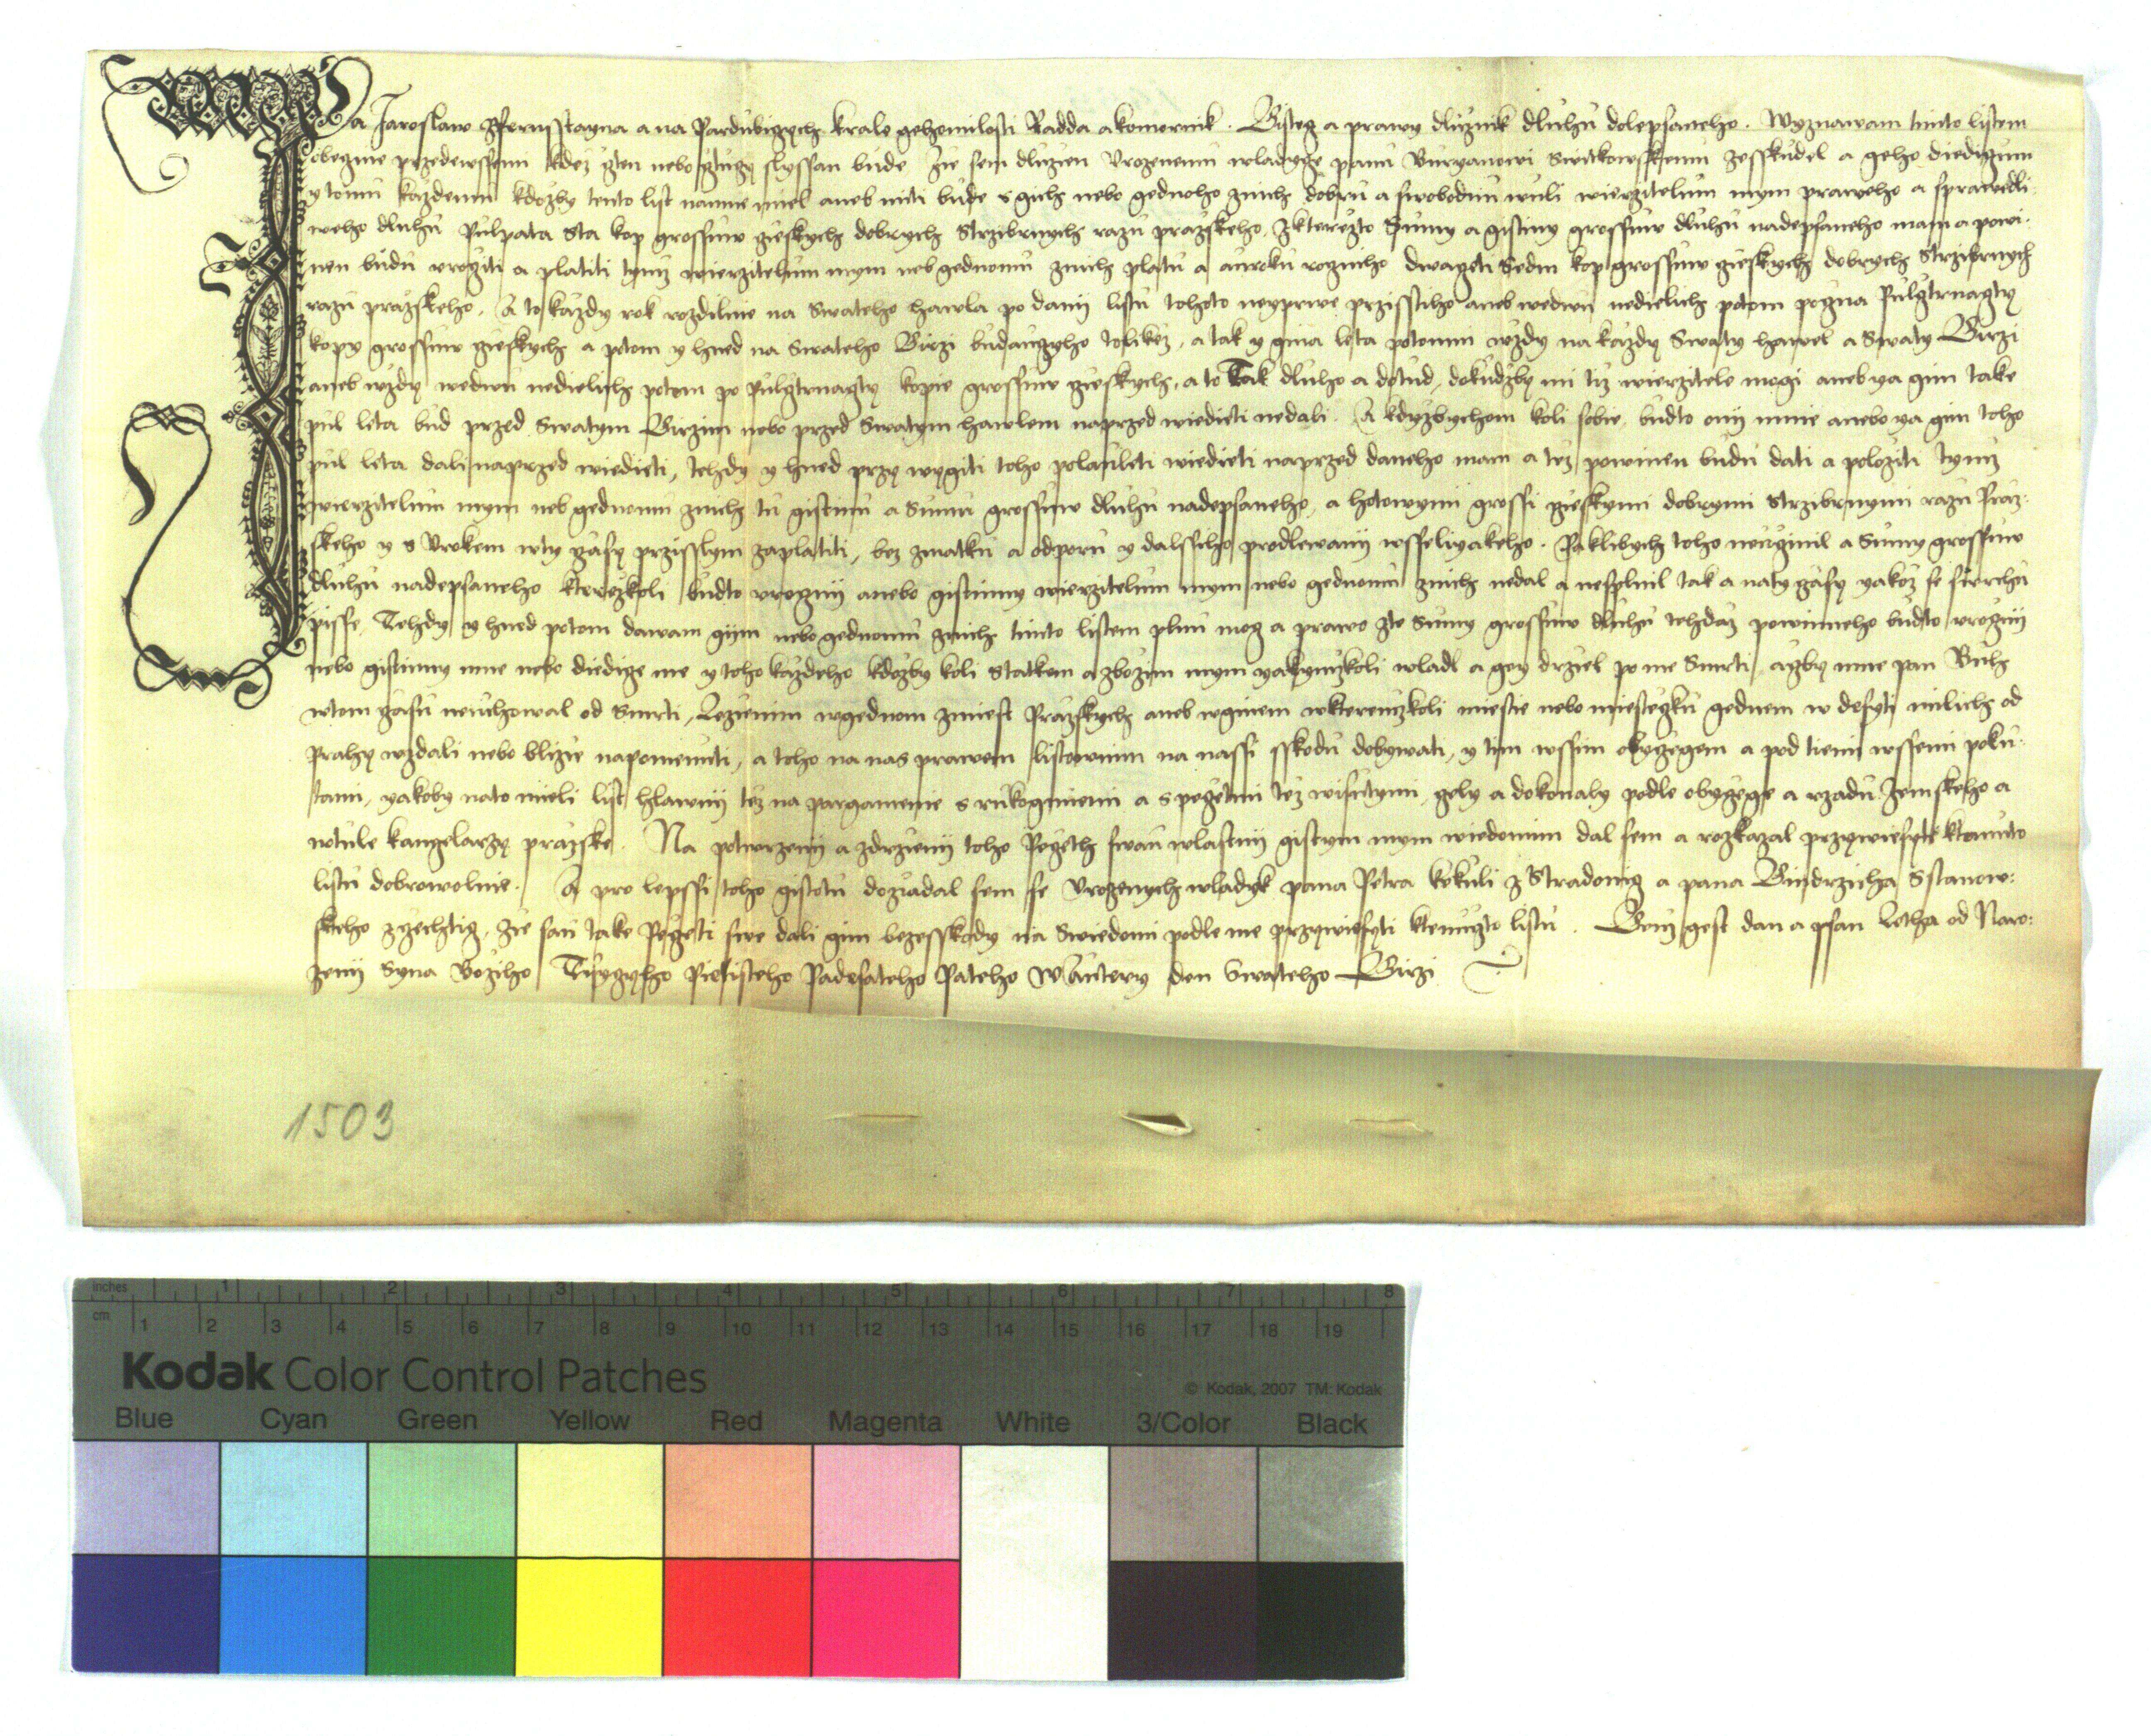 Ja Jaroslaw zPernsstayna a na Pardubiczych krale gehomilosti Radda a komornik. Gistecz a prawy dluznik dluhu dolepsaneho. Wyznawam timto listem
obecznie przedewssemi kdez czten nebo cztuczy slyssan bude Zie sem dluzien Urozenemu wladycze panu Buryanowi Switkowskemu zesskudel a geho diediczum
y tomu kazdemu kdozby tento list namne miel aneb miti bude s gich nebo gednoho znich dobru a swobodnu wuli wierzitelum mym praweho a sprawedli
weho dluhu Pulpata sta kop grossuw czieskych dobrych Strzibrnych razu prazskeho, Zkterezto Summy a gistiny grossuw dluhu nadepsaneho mam a powi-
nen budu urocziti a platiti tymz wierzitelum mym neb gednomu znich platu a auroku roczniho dwaczeti Sedm kop grossuw czieskych dobrych Strzibrnych
razu prazskeho. A to kazdy rok rozdilnie na Swateho hawla po danij listu tohoto neyprwe przisstiho aneb wedwu nedielich potom poczna Pulcztrnaczty
kopy grossuw czieskych a potom y hned na Swateho Girzi buduczyho tolikez, a tak y gina leta potomni wzdy na kazdy Swaty hawel a Swaty Girzi
aneb wzdy wedwu nedielich potom po Pulcztrnaczty kopie grossuw czieskych, a to Tak dluho a dotud, dokudzby mi tiz wierzitele mogi aneb ya gim take
pul leta bud przed Swatym Girzim nebo przed Swatym hawlem naprzed wiedieti nedali. A kdyzbychom koli sobie, budto onij mnie anebo ya gim toho
pul leta dali naprzed wiedieti, tehdy y hned przy wygiti toho polauleti wiedieti naprzed daneho mam a tez powinen budu dati a poloziti tymz
wierzitelum mym neb gednomu znich tu gistinu a Sumu grossuw dluhu nadepsaneho, a hotowymi grossi czieskymi dobrymi Strzibrnymi razu Praz-
skeho y s Urokem wty czasy przisslym zaplatiti, bez zmatku a odporu y dalssiho prodlewanij wsseliyakeho. Paklibych toho neuczinil a Sumy grossuw
dluhu nadepsaneho kterezkoli budto urocznij anebo gistinny wierzitelum mym nebo gednomu znich nedal a nesplnil tak a naty czasy yakoz se swrchu
pisse, Tehdy y hned potom dawam gijm nebo gednomu znich timto listem plnu mocz a prawo zte Sumy grossuw dluhu tehdaz powinneho budto urocznij
nebo gistinny mne nebo diedicze me y toho kazdeho kdozby koli Statkem a zbozim mym yakymzkoli wladl a gey drziel po me Smrti, aczby mne pan Buh
wtom czasu neuchowal od Smrti, Lezienim wgednom zmiest Prazskych aneb wginem wkteremzkoli miestie nebo miesteczku gednem w desyti milich od
Prahy wzdali nebo blizie napomenuti, a toho na nas prawem listownim na nassi sskodu dobywati, y tim wssim obyczegem a pod tiemi wssemi poku-
tami, yakoby nato mieli list hlawnij tez na pargamenie s rukogmiemi a s peczetmi tez wisutymi, czely a dokonaly podle obyczege a rzadu Zemskeho a
wtule kanczelarzy prazske. Na potwrzenij a zdrzienij toho Peczeth swau wlastnij gistym mym wiedomim dal sem a rozkazal przywiesyti ktomuto
listu dobrowolnie. A pro lepssi toho gistotu doziadal sem se Urozenych wladyk pana Petra kekuli z Stradonicz a pana Gindrzicha Sstanow-
skeho zczechticz, Zie sau take Peczeti swe dali gim bezesskody na Swiedomi podle me przywiesyti ktemuzto listu. Genz gest dan a psan Letha od Naro-
zenij Syna Boziho Tisyczyho Pietisteho Padesateho Pateho W Autery den Swateho Girzi
1503
inches 1 2 3 4 5 6 7 8
cm 1 2 3 4 5 6 7 8 9 10 11 12 13 14 15 16 17 18 19
Kodak Color Control Patches
© Kodak, 2007 TM: Kodak
Blue Cyan Green Yellow Red Magenta White 3/Color Black